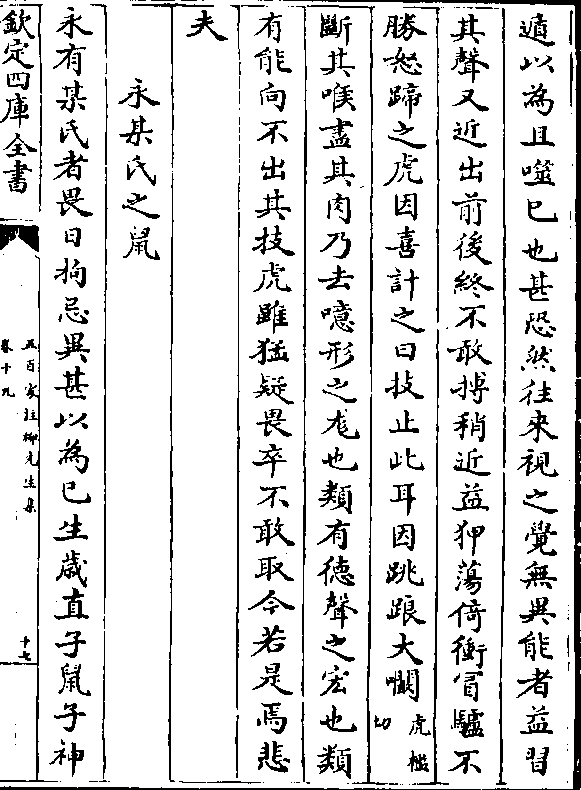 遁以為且噬已也甚恐然往来視之覺無異能者益習
其聲又近出前後終不敢搏稍近益狎蕩倚衝冒驢不
勝怒蹄之虎因喜計之曰技止此耳因跳踉大㘚虎檻切
斷其喉盡其肉乃去噫形之尨也類有徳聲之宏也類
有能向不出其技虎雖猛疑畏卒不敢取今若是焉悲
夫
永某氏之鼠
永有某氏者畏日拘忌異甚以為已生歲直子鼠子神
欽定四庫全書
五百家注柳先生集
卷十九
十七